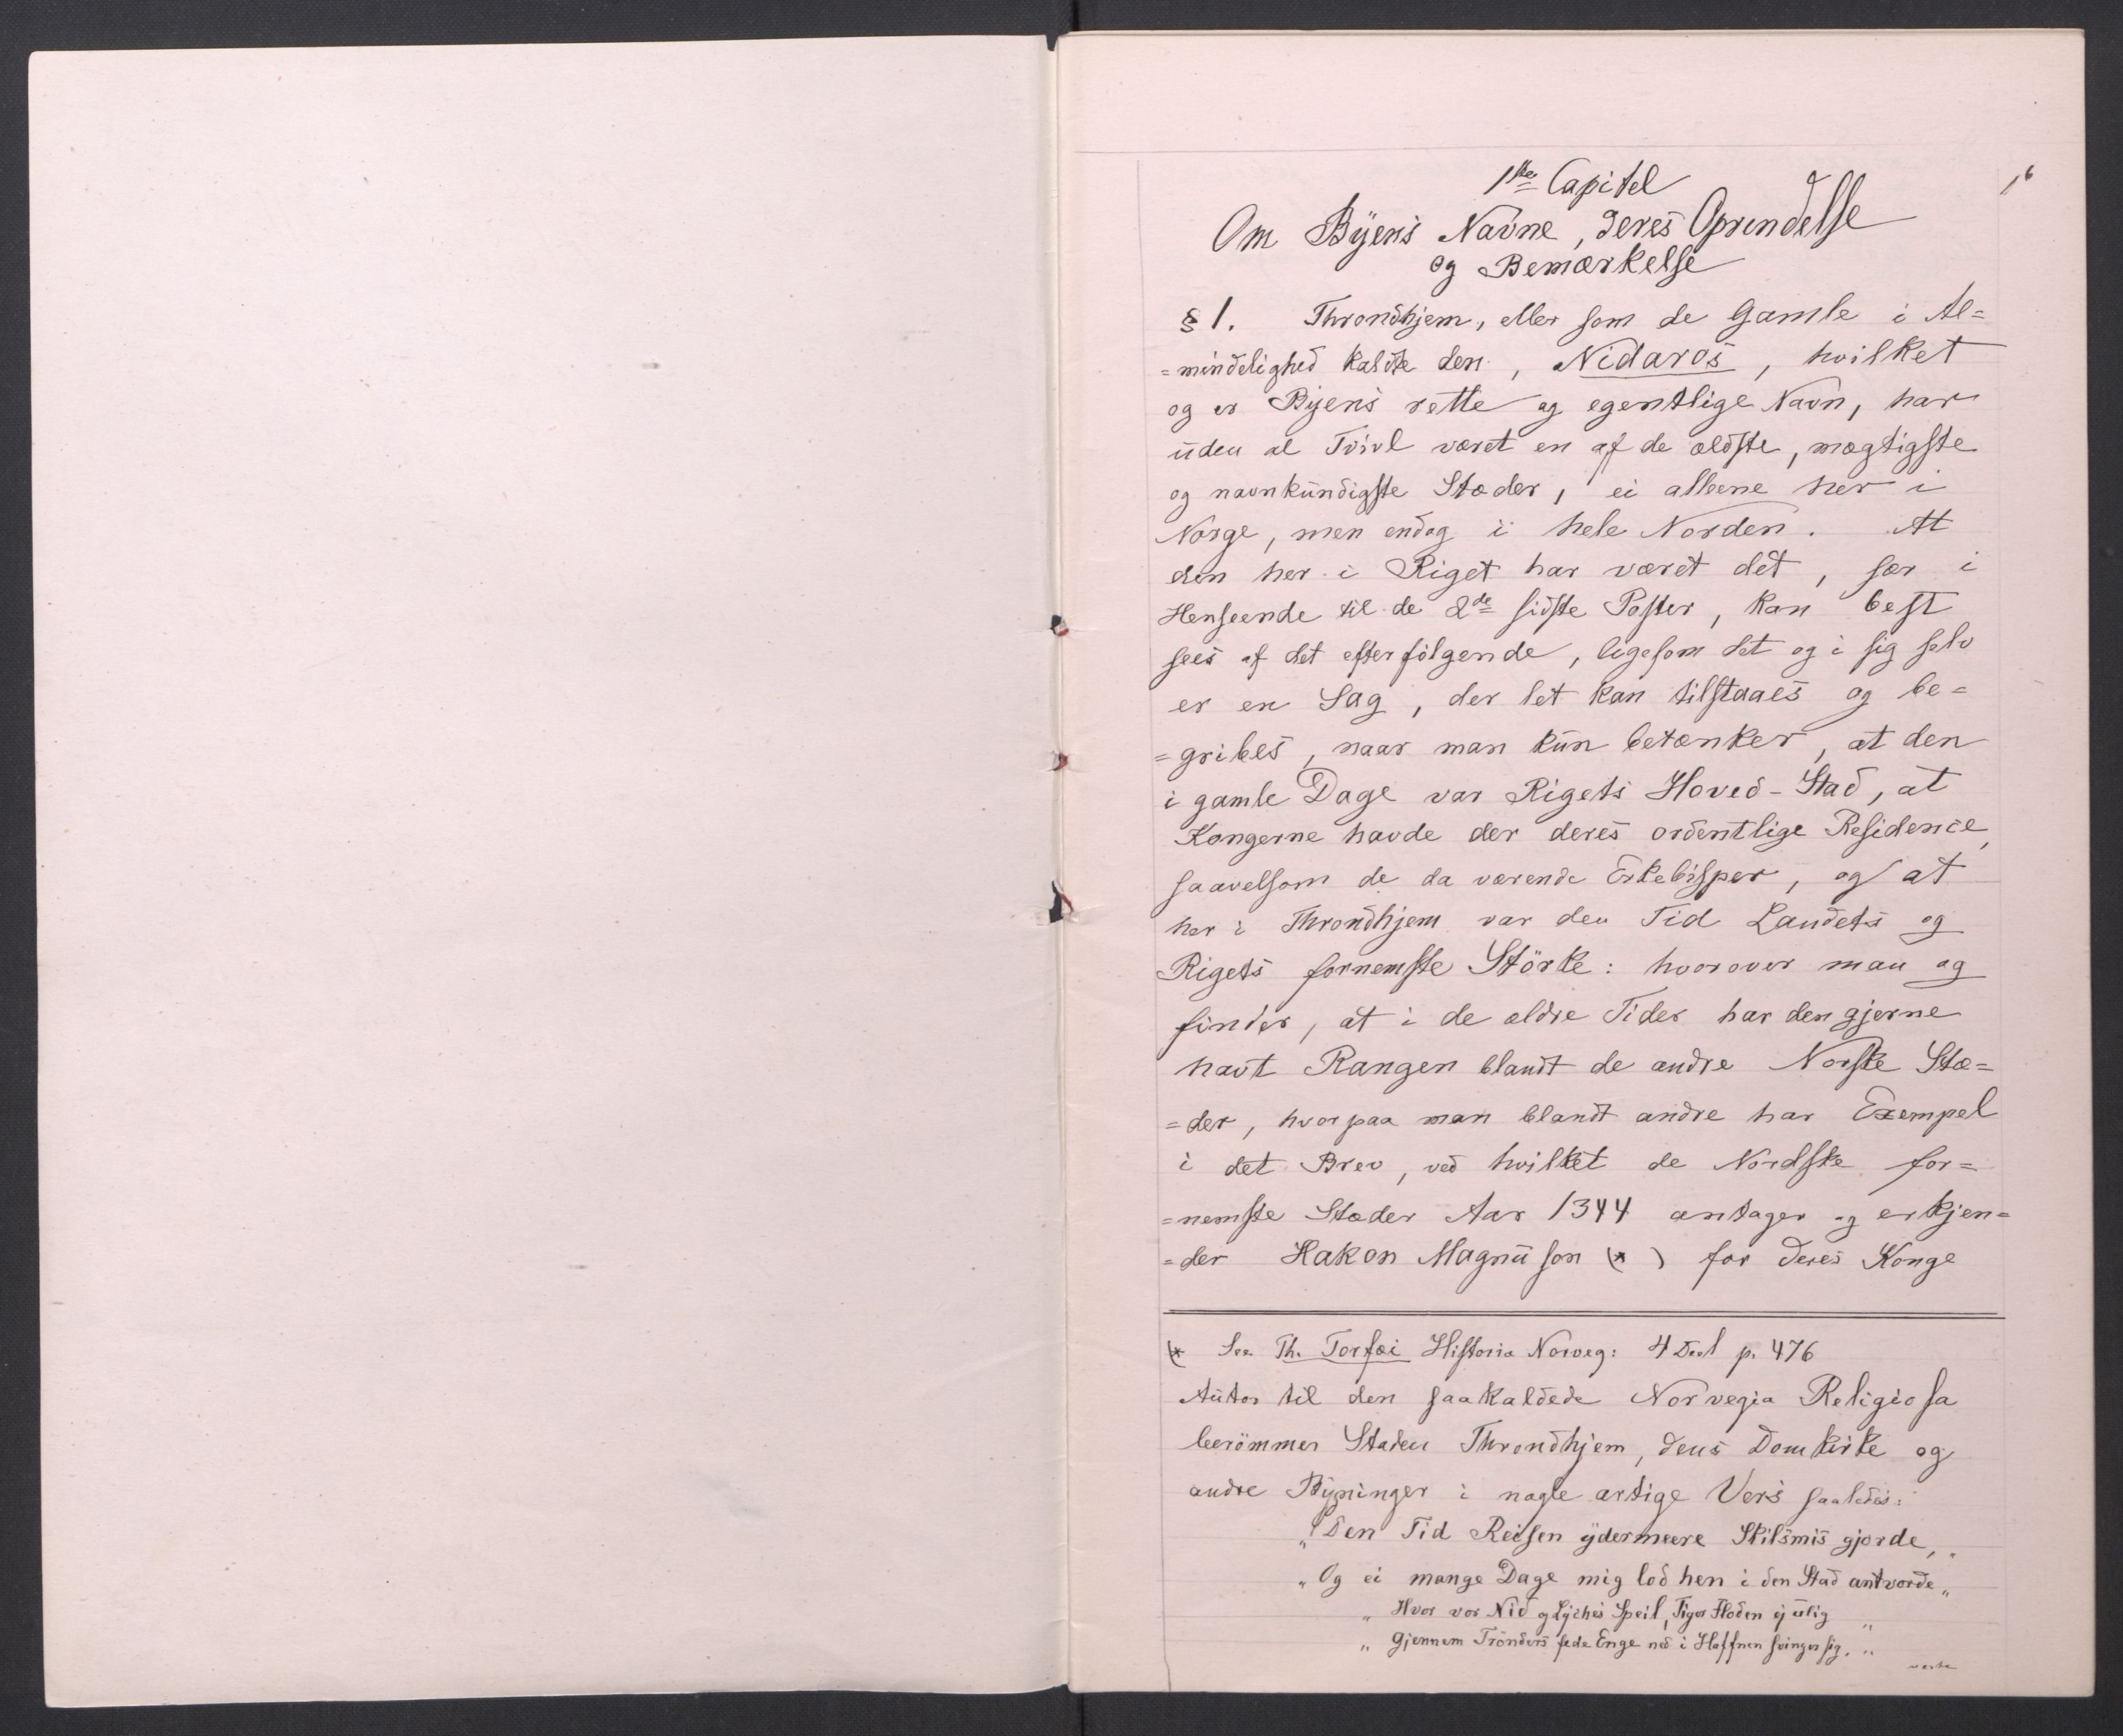 16
1ste Capitel
Om Byens Navne, deres Oprindelse
og Bemærkelse
§ 1. Throndhjem, eller som de Gamle i Al=
=mindelighed kaldte den, Nidaros, hvilket
og er Byens rette og egentlige Navn, har
uden al Tvivl været en af de ældste, mægtigste
og navnkundigste Stæder, ei alleene her i
Norge, men endog i hele Norden. At
den her i Riget har været det, sær i
Henseende til de 2de sidste Poster, kan best
sees af det efterfölgende, ligesom det og i sig selv
er en Sag, der let kan tilstaaes og be=
=gribes, naar man kun betænker, at den
i gamle Dage var Rigets Hoved-Stad, at
Kongerne havde der deres ordentlige Residence,
saavelsom de da værende Erkebisper, og at
her i Throndhjem var den Tid Landets og
Rigets fornemste Störke: hvorover man og
finder, at i de ældre Tider har den gjerne
havt Rangen blandt de andre Norske Stæ=
=der, hvorpaa man blandt andre har Exempel
i det Brev, ved hvilket de Nordske for=
=nemste Stæder Aar 1344 antager og erkjen=
=der Hakon Magnuson (*) for deres Konge
(* See Th. Torfæi Historia Norveg: 4 Deel p. 476
Autor til den saakaldede Norvegia Religiosa
berömmer Staden Throndhjem, dens Domkirke og
andre Bygninger i nogle artige Vers saaledes:
"Den Tid Reisen ydermeere Skilsmis gjorde, "
"Og ei mange Dage mig lod hen i den Stad antvorde"
"Hvor vor Nid og Lyches Speil, Tiger Floden ej ulig "
"Gjennem Trönders fede Enge ned i Haffnen svinger sig. "